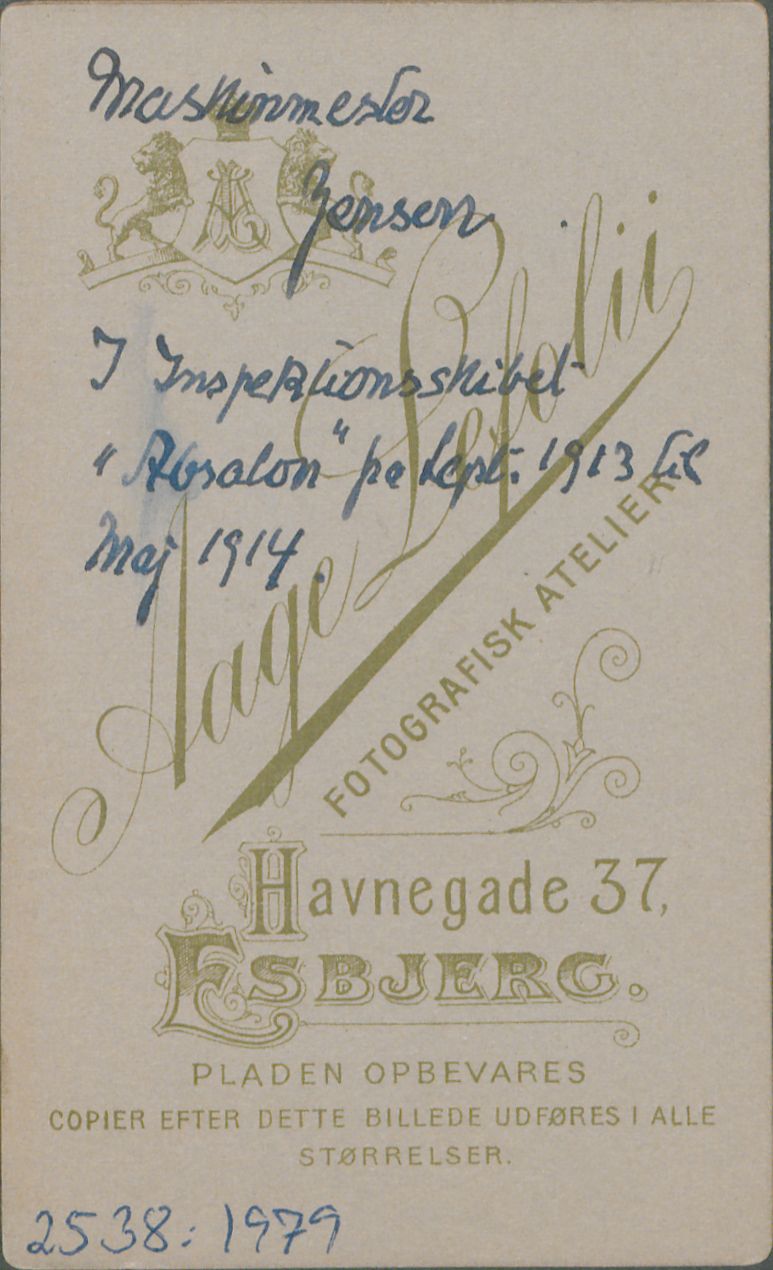 Maskinmester
Jensen
I Inspektionsskibet
"Absalon" fra Sept. 1913 til
Maj 1914.
AL
Aage Lefolii
FOTOGRAFISK ATELIER
Havnegade 37,
ESBJERG.
PLADEN OPBEVARES
COPIER EFTER DETTE BILLEDE UDFØRES I ALLE
STØRRELSER.
2538:1979